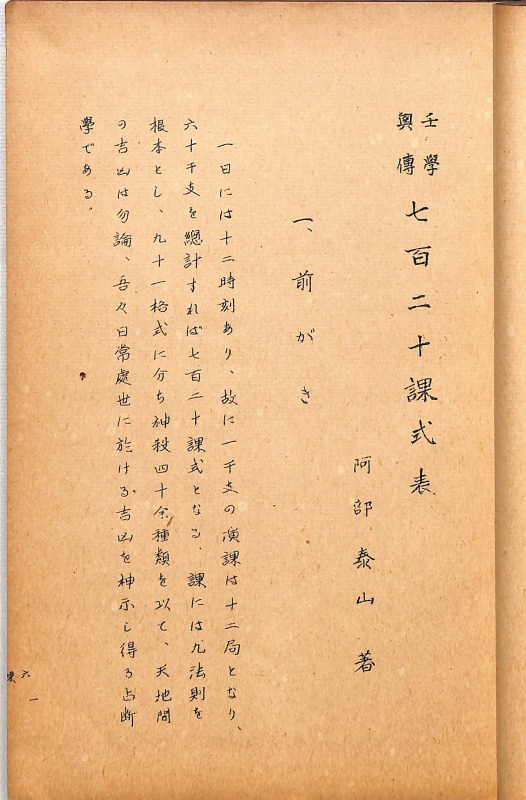 壬學奥傳 七百二十課式表
阿部泰山 著
一、前がき
一日には十二時刻あり、故に一干支の演課は十二局となり、
六十干支を總計すれば七百二十課式となる、課には九法則を
根本とし、九十一格式に分ち神殺四十余種類を以て、天地間
の吉凶は勿論、吾々日常處世に於ける吉凶を神示し得る占断
學である。
六 一